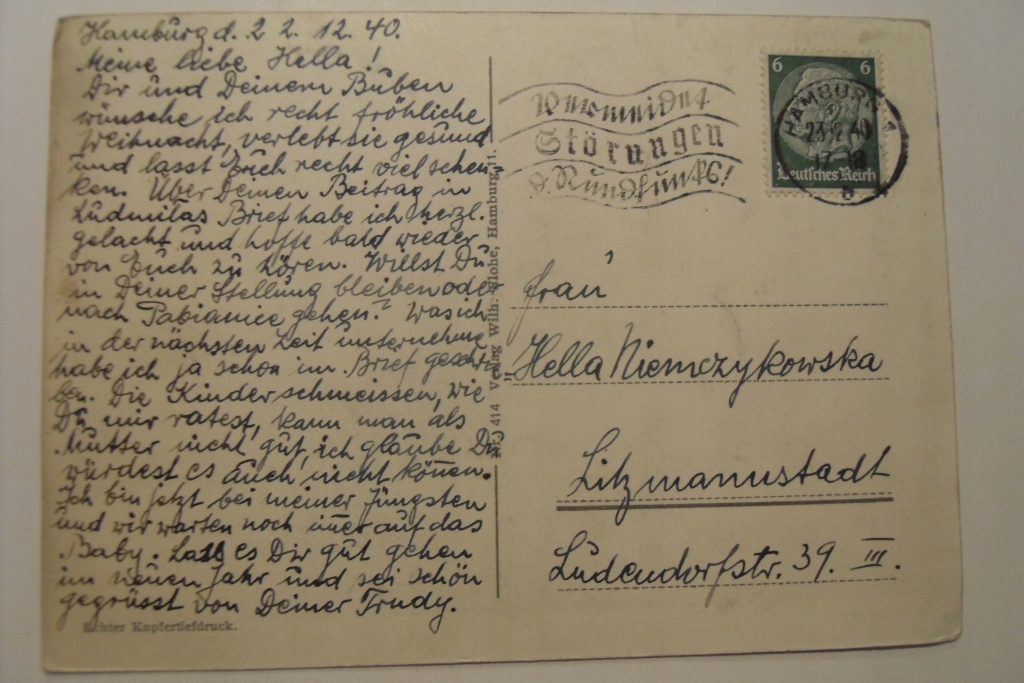 Hamburg d. 22.12.40.
Meine liebe Hella!
Dir und Deinem Buben
wünsche ich recht fröhliche
Weihnacht, verlebt sie gesund
und lasst Euch recht viel schen-
ken. Über Deinen Beitrag in
Ludmilas Brief habe ich herzl.
gelacht und hoffe bald wieder
von Euch zu hören. Willst Du
in Deiner Stellung bleiben oder
nach Pabianice gehen? Was ich
in der nächsten Zeit unternehme
habe ich ja schon im Brief geschrie-
ben. Die Kinder schmeissen, wie
Du mir ratest, kann man als
Mutter nicht gut, ich glaube Du
würdest es auch nicht können.
Ich bin jetzt bei meiner Jüngsten
und wir warten noch imer auf das
Baby. Lass es Dir gut gehen
im neuen Jahr und sei schön
gegrüsst von Deiner Trudy.
Echter Kupfertiefdruck.
Nr. 414 Verlag Wilh. Hamburg 1.
Vermeidet
Störungen
d. Rundfunks!
6 6
HAMBURG 1
23.12.40
17-18
Deutsches Reich
Frau
Hella Niemczykowska
Litzmannstadt
Ludendorfstr. 39. III.